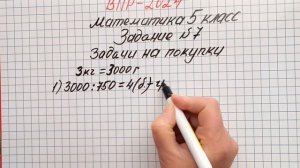 ВПР-2024
Математика 5 класс
Задание №7
Задачи на покупки
3кг = 3000 г
1) 3000:750 = 4(б)-